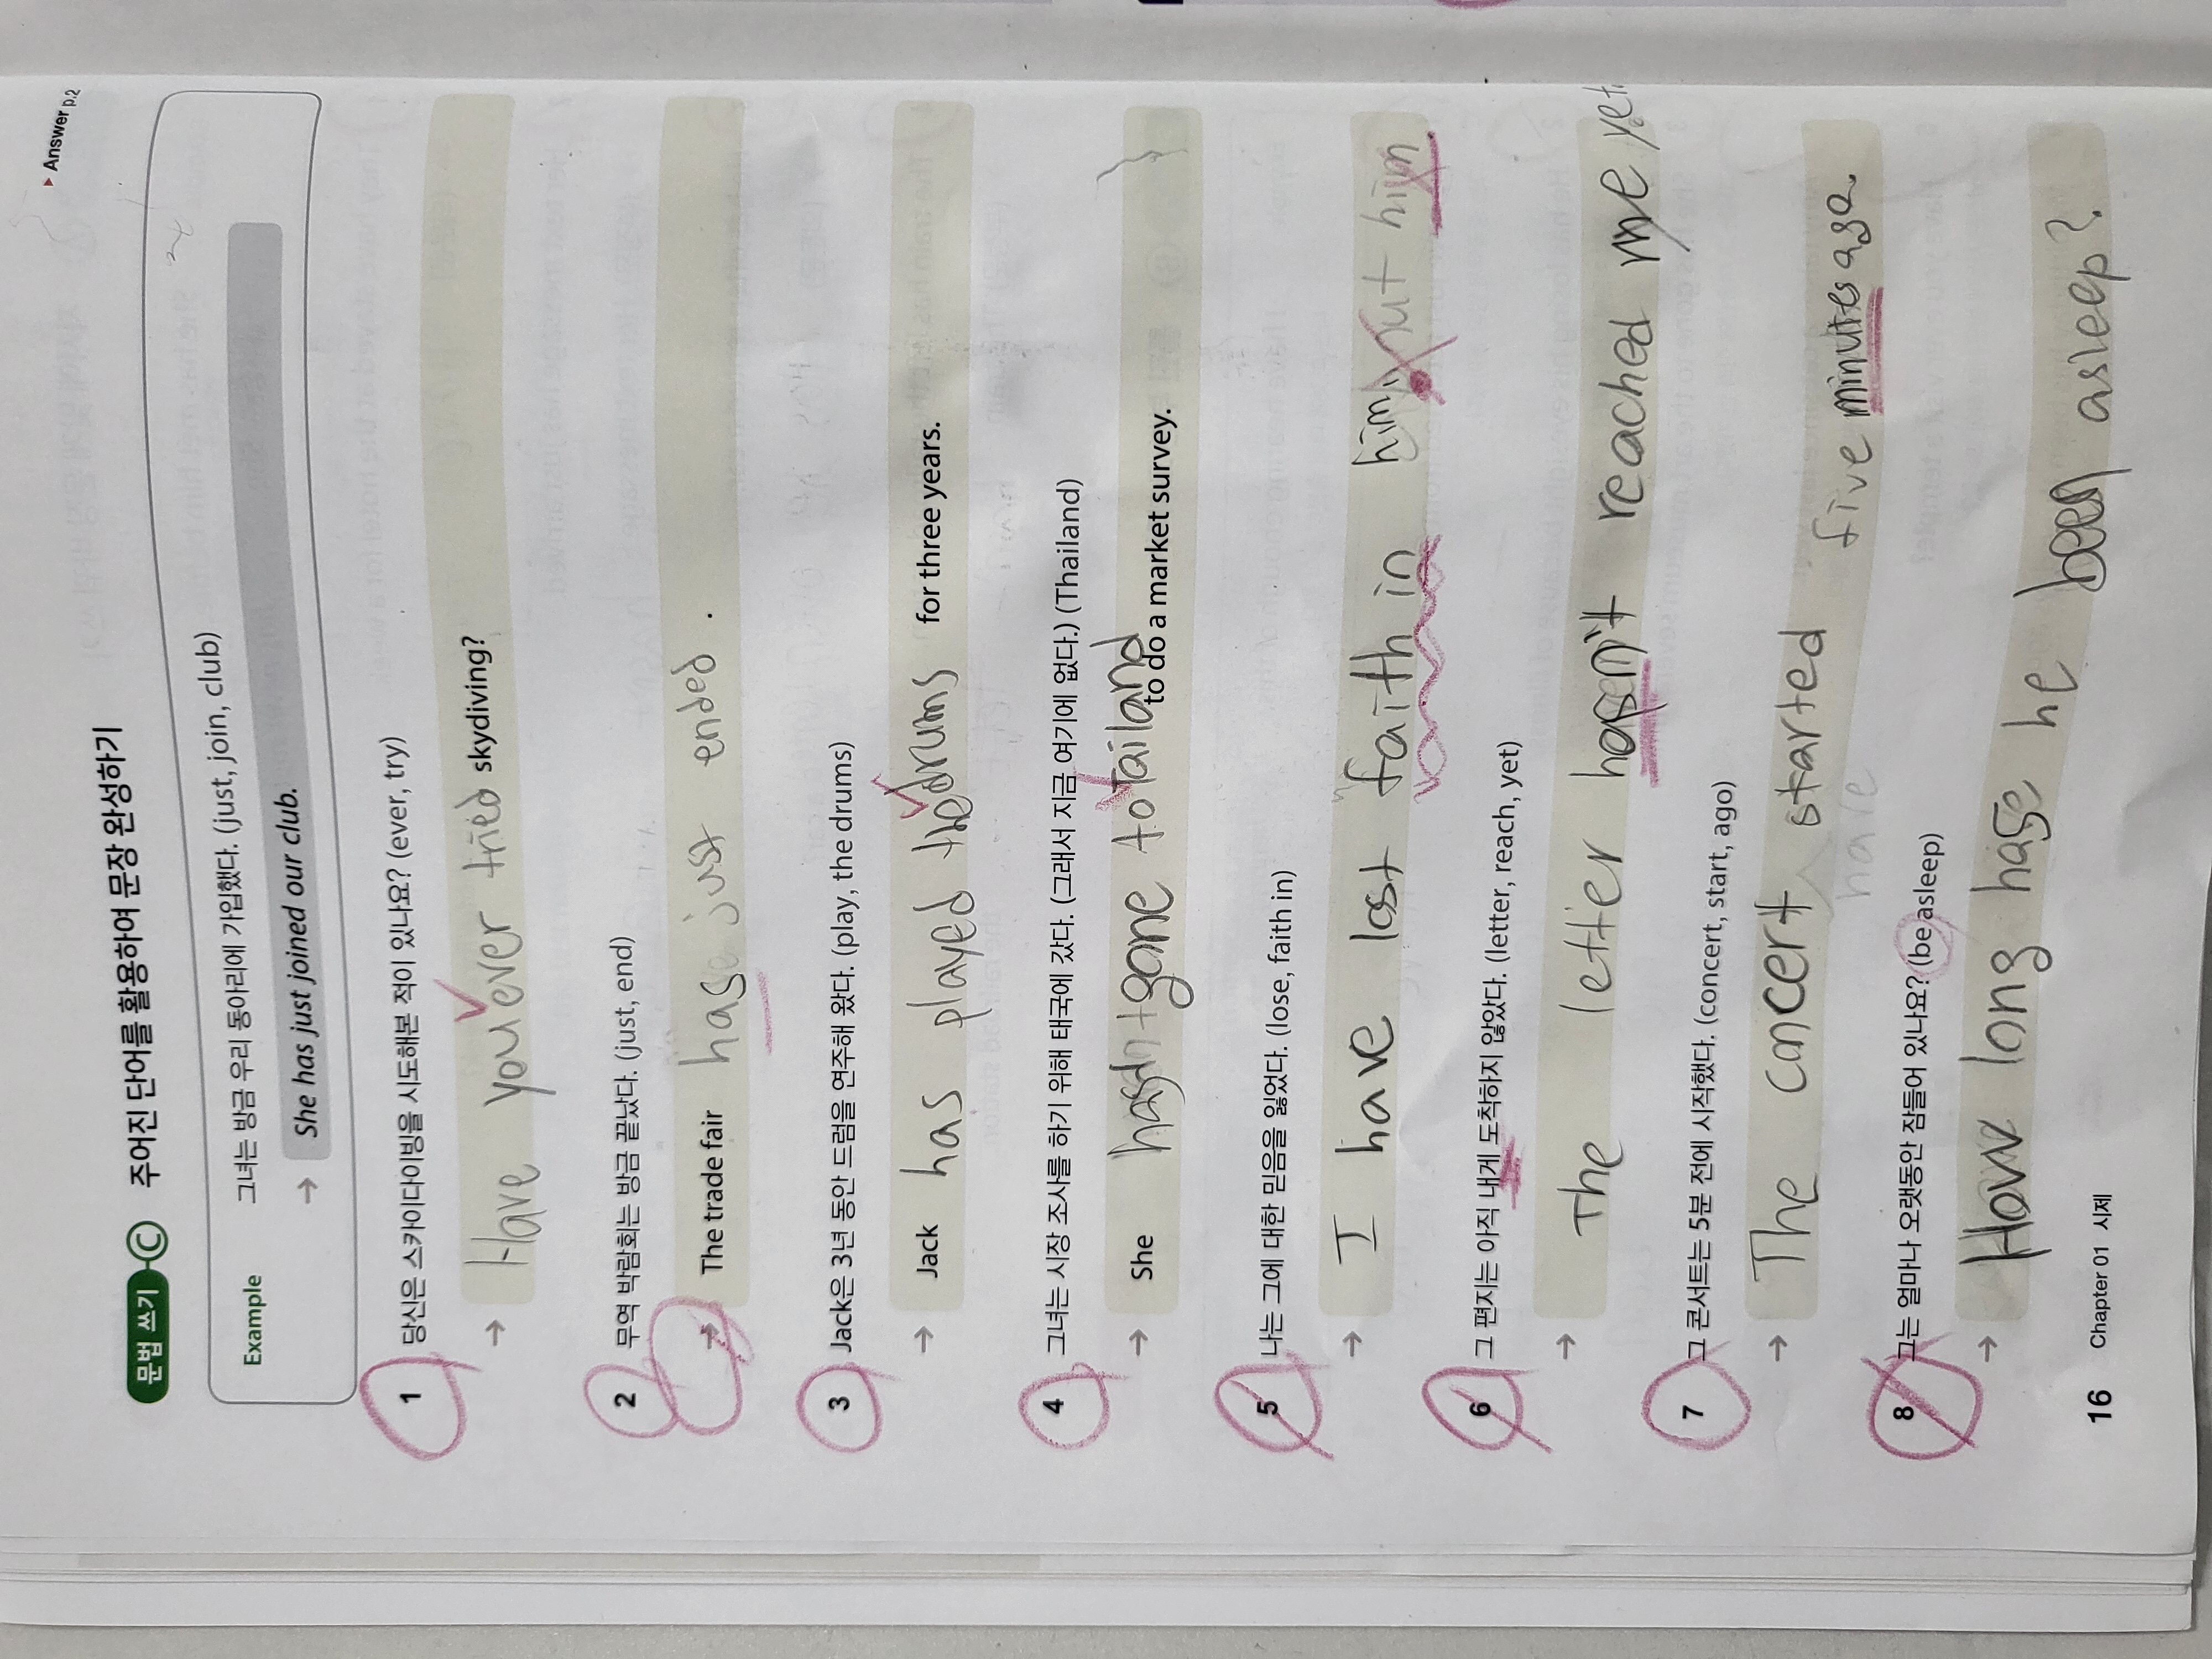 ▶ Answer p.2
문법 쓰기 C 주어진 단어를 활용하여 문장 완성하기
Example 그녀는 방금 우리 동아리에 가입했다. (just, join, club)
→ She has just joined our club.
1 당신은 스카이다이빙을 시도해본 적이 있나요? (ever, try)
→ Have you ever tried skydiving?
2 무역 박람회는 방금 끝났다. (just, end)
→ The trade fair has just ended .
3 Jack은 3년 동안 드럼을 연주해 왔다. (play, the drums)
→ Jack has played the drums for three years.
4 그녀는 시장 조사를 하기 위해 태국에 갔다. (그래서 지금 여기에 없다.) (Thailand)
→ She gone to Tailand to do a market survey.
5 나는 그에 대한 믿음을 잃었다. (lose, faith in)
→ I have lost faith in him. him
6 그 편지는 아직 내게 도착하지 않았다. (letter, reach, yet)
→ The letter hasn't reached me yet.
7 그 콘서트는 5분 전에 시작했다. (concert, start, ago)
→ The concert started five minutes ago.
have
8 그는 얼마나 오랫동안 잠들어 있나요? (be asleep)
→ How long has he been asleep?
16 Chapter 01 시제